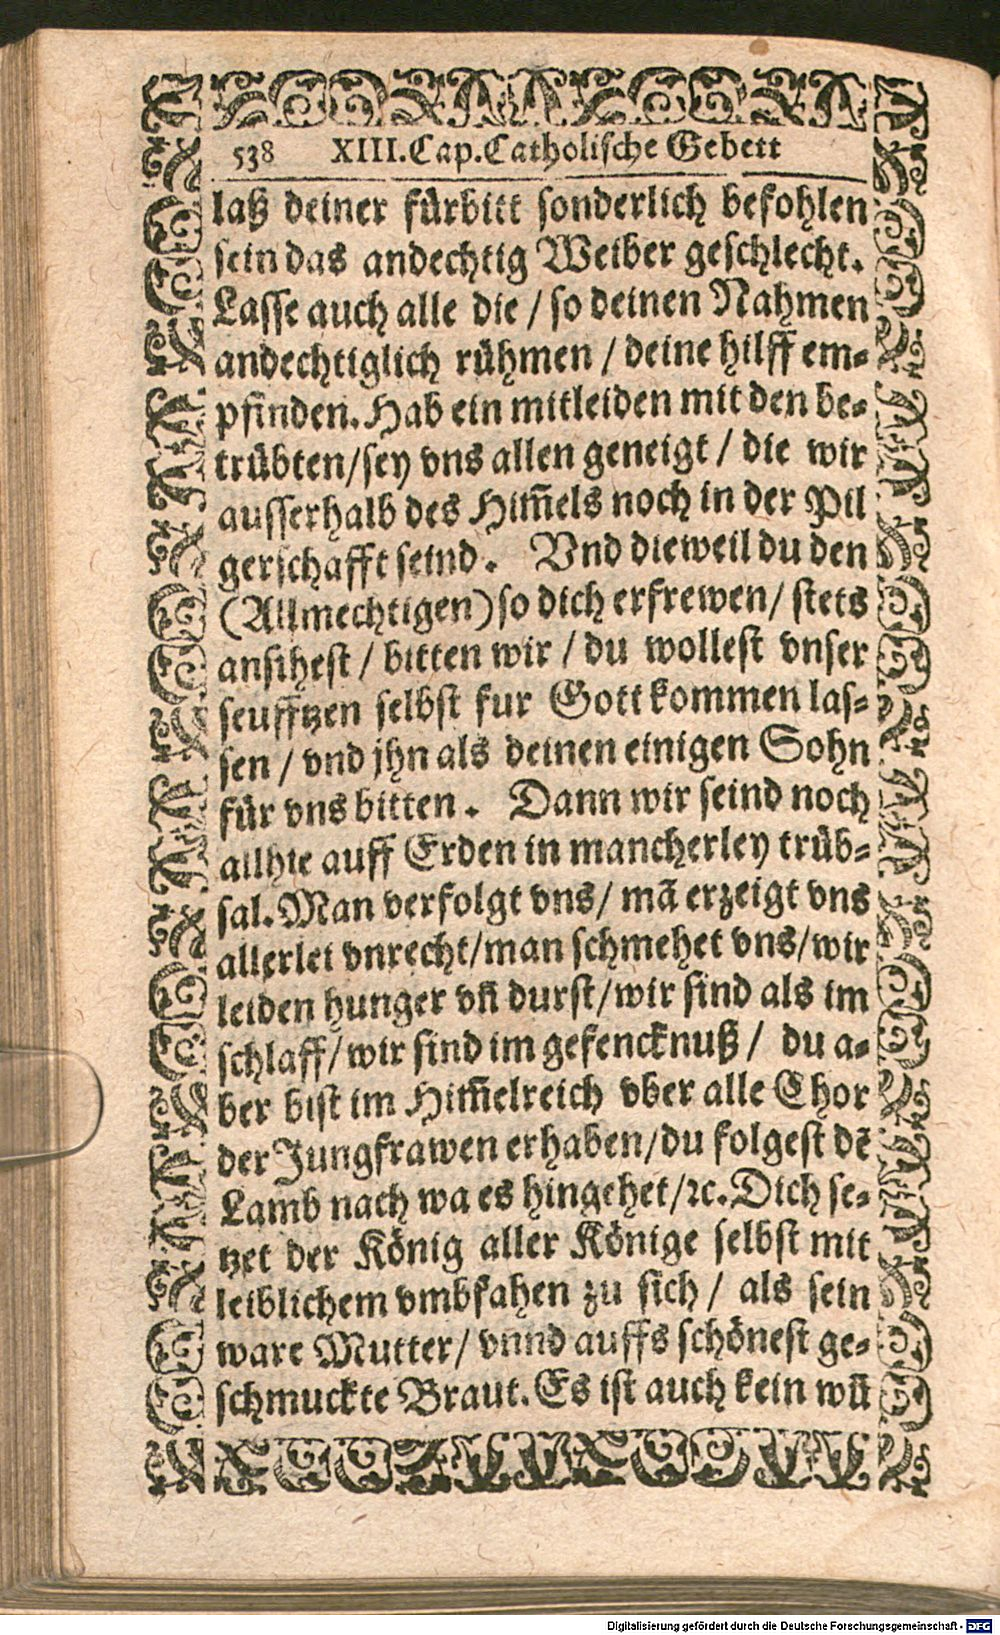 538 XIII.Cap.Catholische Gebett
laß deiner fürbitt sonderlich befohlen
sein das andechtig Weiber geschlecht.
Lasse auch alle die / so deinen Nahmen
andechtiglich rühmen / deine hilff em-
pfinden. Hab ein mitleiden mit den be-
trübten/sey vns allen geneigt / die wir
ausserhalb des Him̃els noch in der Pil
gerschafft seind. Vnd dieweil du den
(Allmechtigen) so dich erfrewen/ stets
ansihest / bitten wir / du wollest vnser
seufftzen selbst fur Gott kommen las-
sen / vnd jhn als deinen einigen Sohn
für vns bitten. Dann wir seind noch
allhie auff Erden in mancherley trüb-
sal. Man verfolgt vns/ mã erzeigt vns
allerlei vnrecht/man schmehet vns/wir
leiden hunger vñ durst/wir sind als im
schlaff/wir sind im gefencknuß / du a-
ber bist im Him̃elreich vber alle Chor
der Jungfrawen erhaben/du folgest dẽ
Lamb nach wa es hingehet/ꝛc. Dich se-
tzet der König aller Könige selbst mit
leiblichem vmbfahen zu sich / als sein
ware Mutter/ vnnd auffs schönest ge-
schmuckte Braut. Es ist auch kein wũ
Digitalisierung gefördert durch die Deutsche Forschungsgemeinschaft - DFG